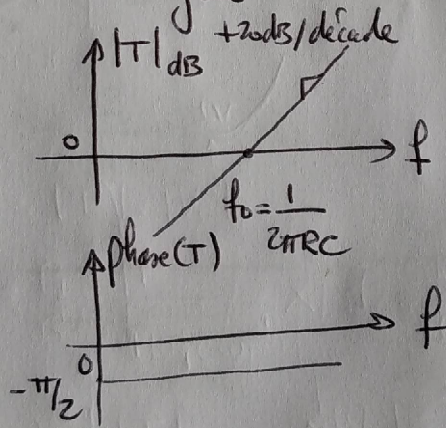 +20dB/décade
|T|dB
0
f
f0 = 1/2πRC
phase(T)
f
0
-π/2